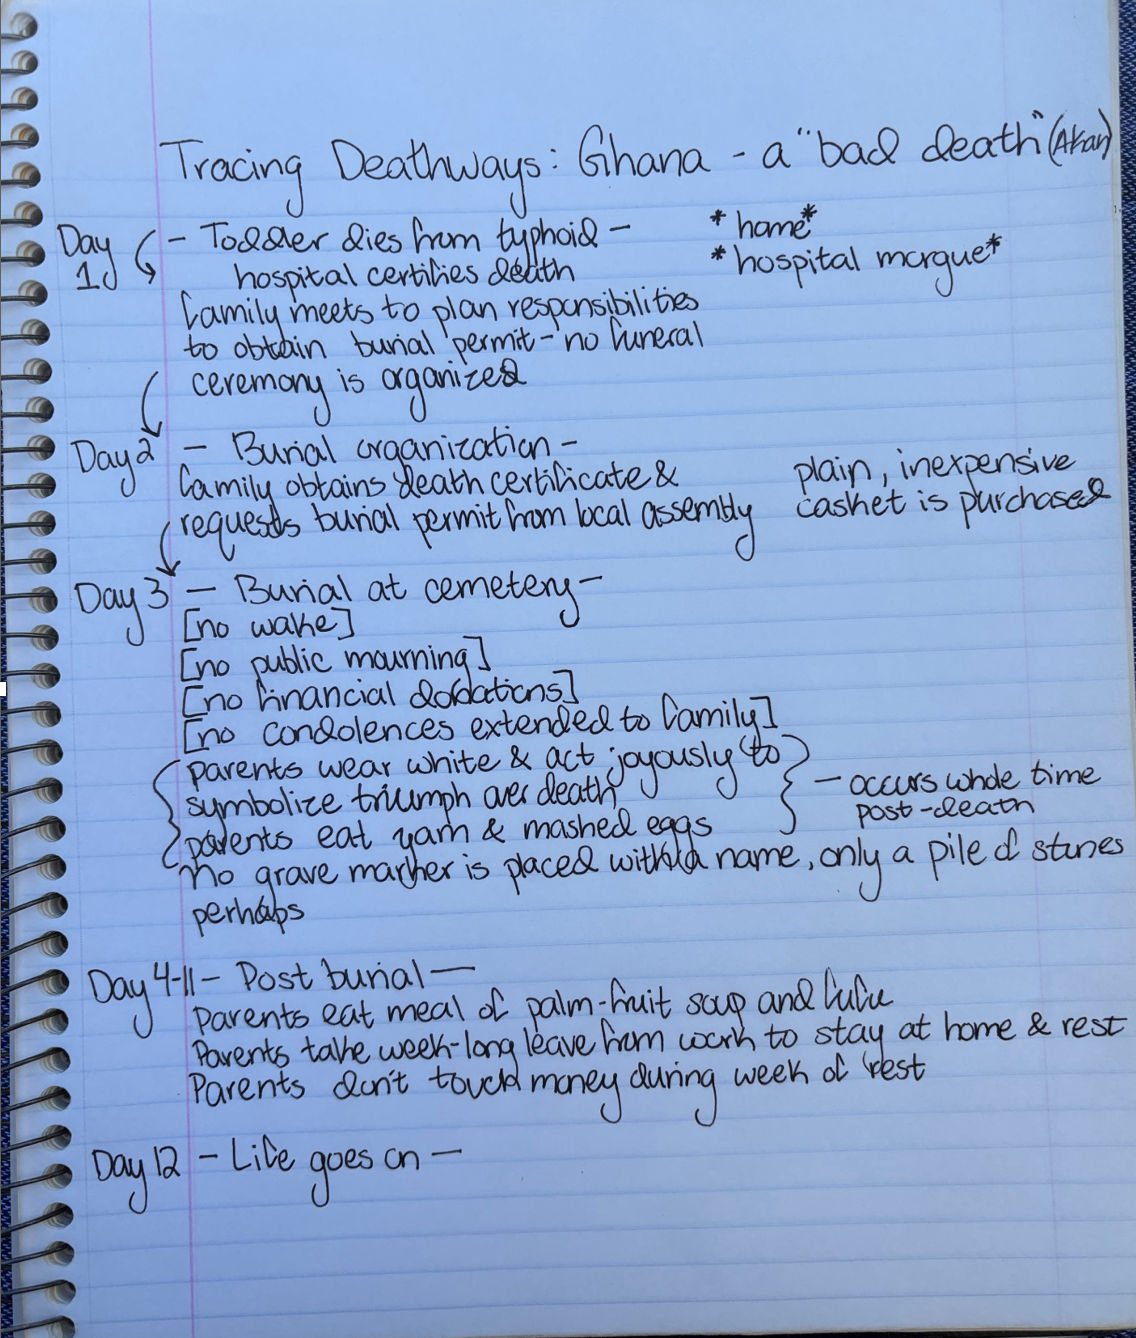 Tracing Deathways: Ghana - a "bad death" (Akan)
Day 1 - Toddler dies from typhoid - *home*
hospital certifies death *hospital morgue*
family meets to plan responsibilities
to obtain burial permit - no funeral
ceremony is organized
Day 2 - Burial organization -
family obtains death certificate & plain, inexpensive
requests burial permit from local assembly casket is purchased
Day 3 - Burial at cemetery -
[no wake]
[no public mourning]
[no financial donations]
[no condolences extended to family]
parents wear white & act joyously (to
symbolize triumph over death - occurs whole time
post-death
parents eat yam & mashed eggs
no grave marker is placed with a name, only a pile of stones
perhaps
Day 4-11 - Post burial -
Parents eat meal of palm-fruit soup and fufu
Parents take week-long leave from work to stay at home & rest
Parents don't touch money during week of rest
Day 12 - Life goes on -